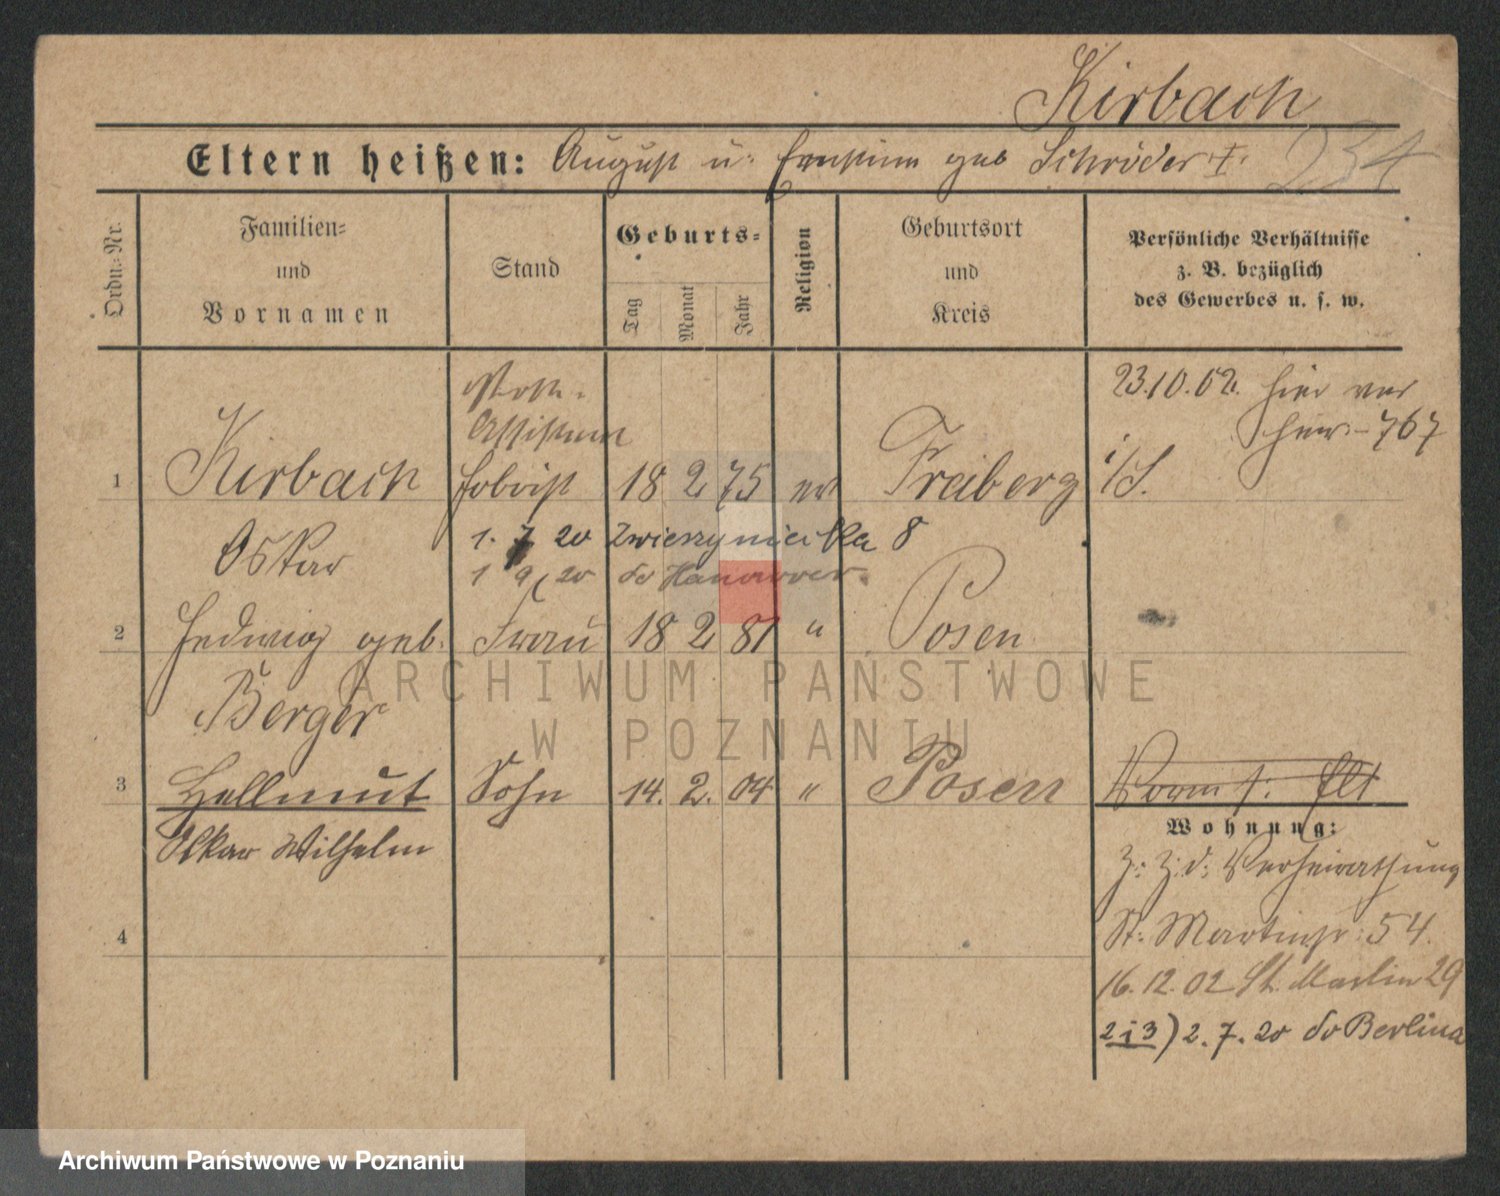 Kirbach
Eltern heißen: August u. Ernstine geb Schröder †. 234
Ordn.-Nr.
Familien- und Vornamen
Stand
Geburts-
Tag Monat Jahr
Religion
Geburtsort und Kreis
Persönliche Verhältnisse z. B. bezüglich des Gewerbes u. s. w.
23.10.02. hier ver
767
Post-
Assistent
1 Kirbach 18 2 75 ev Freiberg i/S.
Oskar
1. 7 20 Zwierzyniecka 8
1 9 20 do Hannover.
2 Hedwig geb. Frau 18 2 81 " Posen
Berger
3 Hellmut Sohn 14. 2. 04 " Posen
Oskar Wilhelm
4
Wohnung:
Z: Z: d: Verheirathung
St. Martinstr: 54.
16.12.02 St. Martin 29
2 i 3) 2. 7. 20 do Berlina
ARCHIWUM PAŃSTWOWE
W POZNANIU
Archiwum Państwowe w Poznaniu